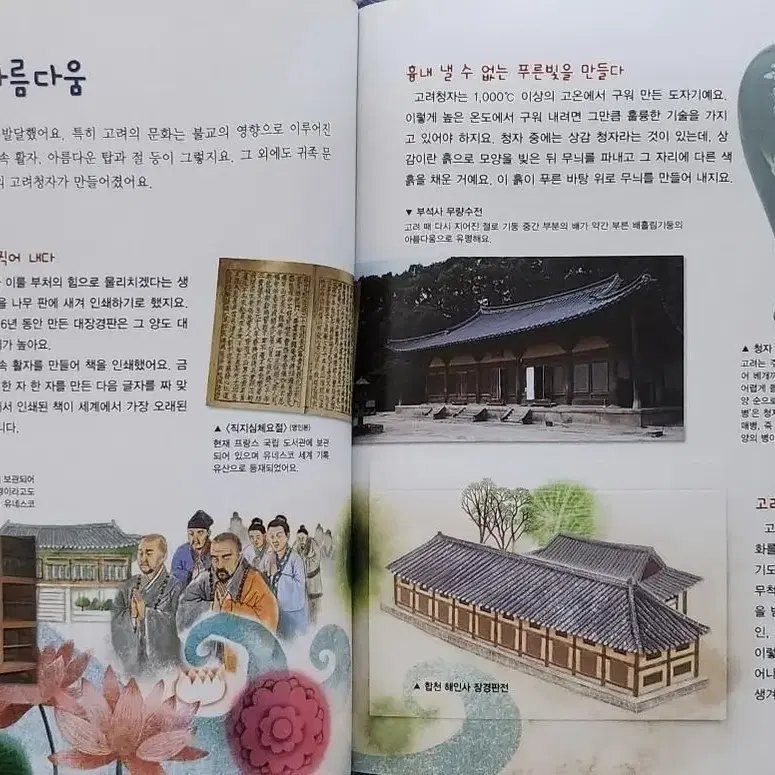 름다움
발달했어요. 특히 고려의 문화는 불교의 영향으로 이루어진
속 활자, 아름다운 탑과 절 등이 그렇지요. 그 외에도 귀족 문
의 고려청자가 만들어졌어요.
찍어 내다
이를 부처의 힘으로 물리치겠다는 생
을 나무 판에 새겨 인쇄하기로 했지요.
6년 동안 만든 대장경판은 그 양도 대
가 높아요.
속 활자를 만들어 책을 인쇄했어요. 금
한 자 한 자를 만든 다음 글자를 짜 맞
서 인쇄된 책이 세계에서 가장 오래된
니다.
▲ 〈직지심체요절〉(영인본)
현재 프랑스 국립 도서관에 보관
되어 있으며 유네스코 세계 기록
유산으로 등재되었어요.
보관되어
경이라고도
유네스코
흉내 낼 수 없는 푸른빛을 만들다
고려청자는 1,000℃ 이상의 고온에서 구워 만든 도자기예요.
이렇게 높은 온도에서 구워 내려면 그만큼 훌륭한 기술을 가지
고 있어야 하지요. 청자 중에는 상감 청자라는 것이 있는데, 상
감이란 흙으로 모양을 빚은 뒤 무늬를 파내고 그 자리에 다른 색
흙을 채운 거예요. 이 흙이 푸른 바탕 위로 무늬를 만들어 내지요.
▼ 부석사 무량수전
고려 때 다시 지어진 절로 기둥 중간 부분의 배가 약간 부른 배흘림기둥의
아름다움으로 유명해요.
▲ 합천 해인사 장경판전
▲ 청자
고려는 주
어 베개까
어렵게 
양 순으로
병'은 청자
매병, 죽
양의 병이
고려
고
화를
기도
무척
을 받
인,
이렇
어나
생겨